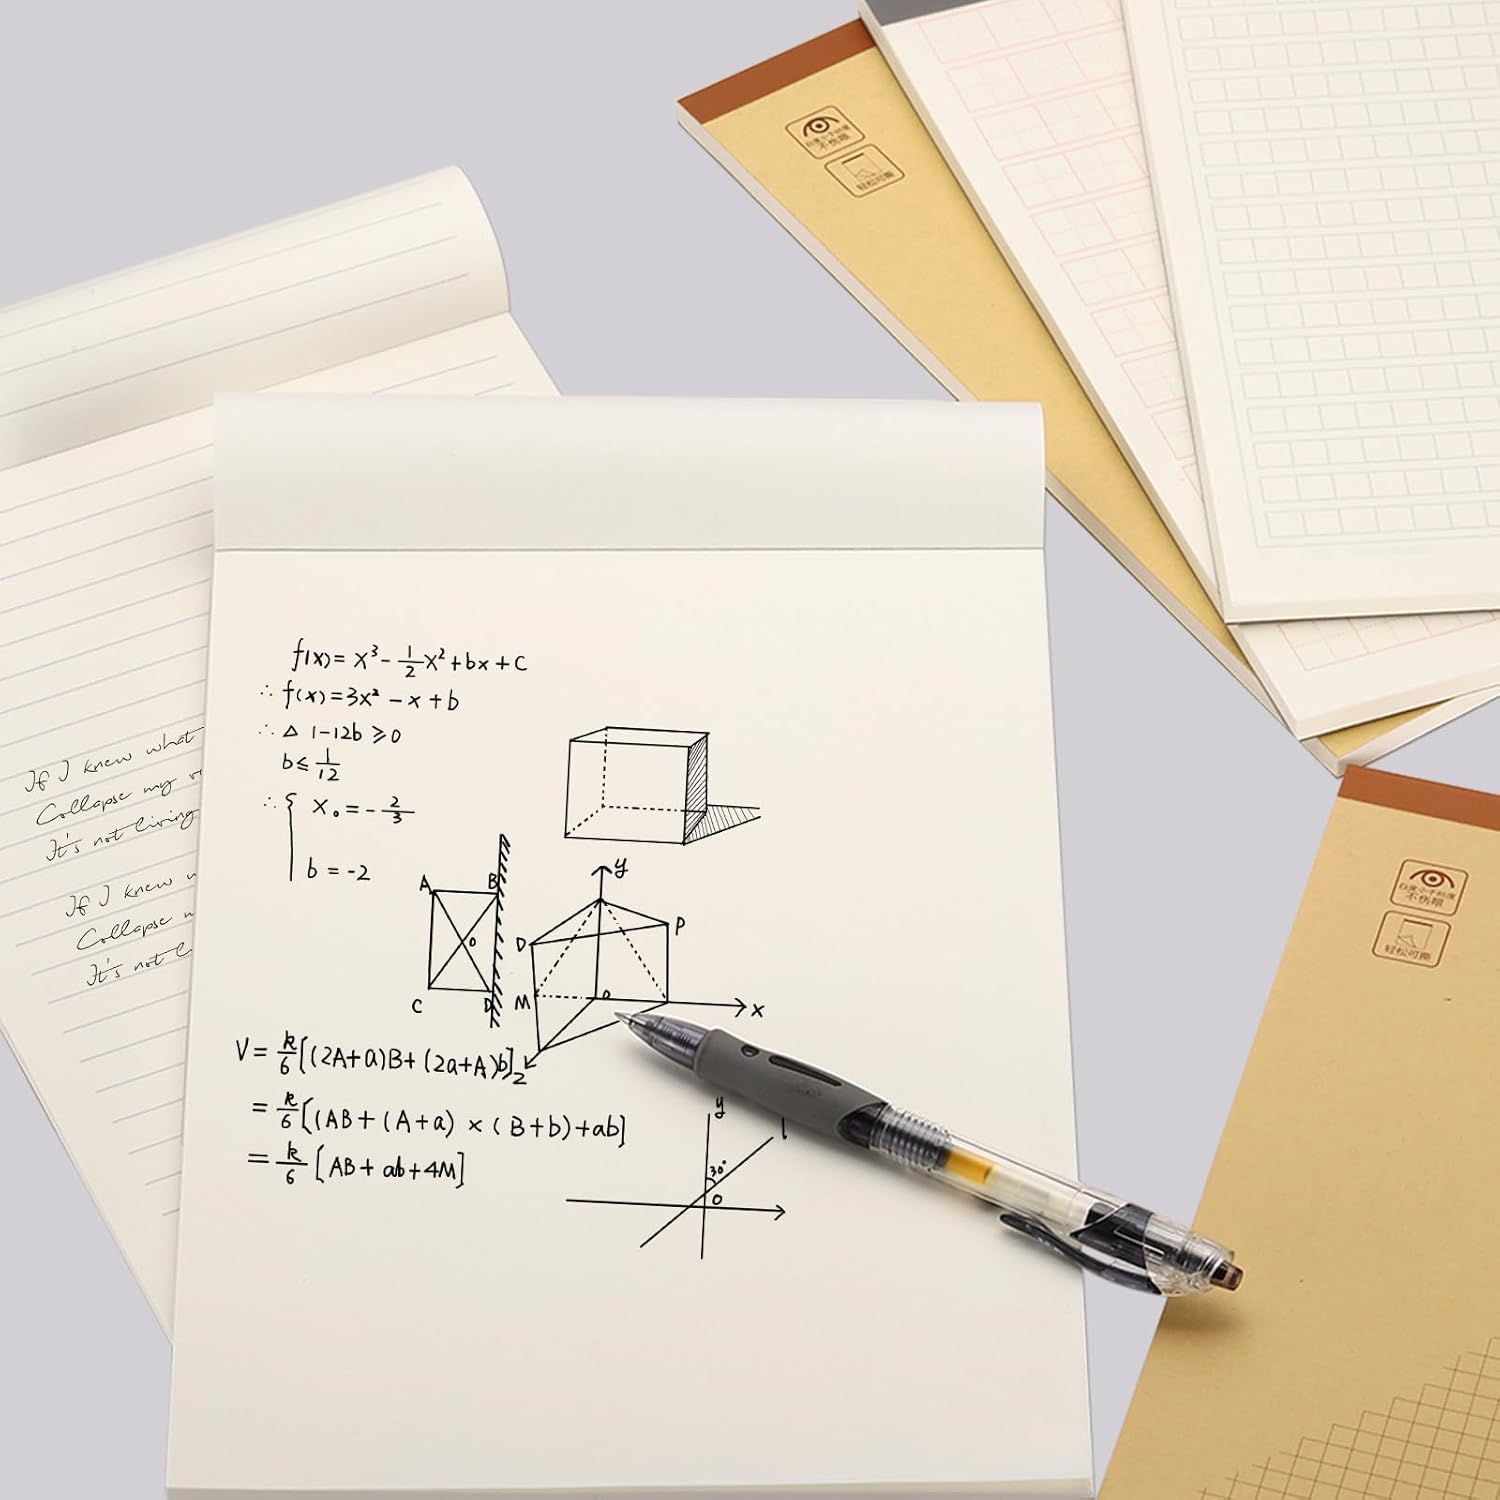 不伤眼
轻松可撕
If I knew what
Collapse my
It's not living
If I knew
Collapse
It's not
f(x)= x³- 1/2 x²+bx+c
∴ f(x)=3x² - x + b
∴ △ 1-12b ≥0
b≤ 1/12
∴ { x₀ = - 2/3
b = -2
A B
O
C D
y
D P
M O x
z
V = k/6 [(2A+a)B+(2a+A)b]
= k/6 [(AB+(A+a) × (B+b)+ab]
= k/6 [AB+ab+4M]
y l
30°
O
不伤眼
轻松可撕